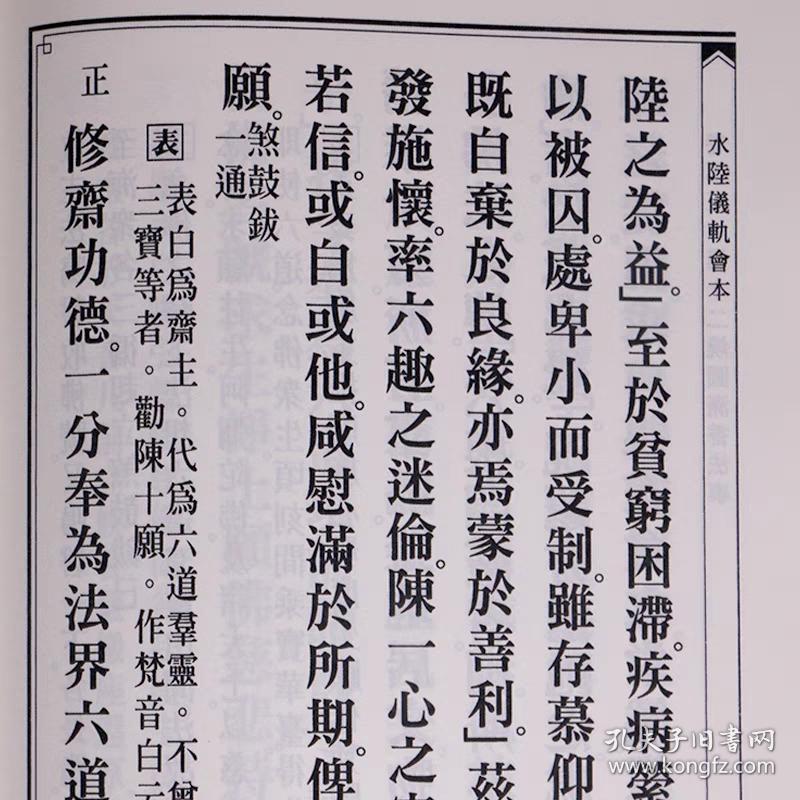 水陸儀軌會本
陸之為益」。至於貧窮困滯。疾病縈
以被囚。處卑小而受制。雖存慕仰
既自棄於良緣。亦焉蒙於善利」。茲
發施懷。率六趣之迷倫。陳一心之
若信。或自或他。咸慰滿於所期。俾
願。
煞鼓鈸
一通
表
表白爲齋主。代爲六道羣靈。不曾
三寶等者。勸陳十願。作梵音白云
正
修齋功德。一分奉為法界六道
孔夫子旧书网
kongfz.com